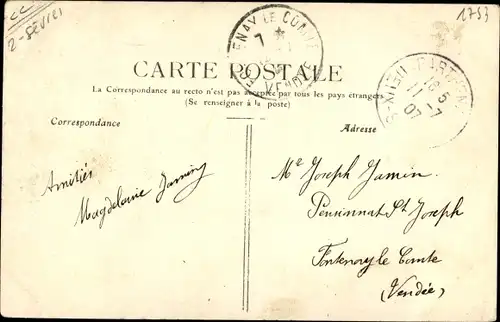 1753
2-SÈVRES
FONTENAY LE COMTE
7
VENDÉE
CARTE POSTALE
La Correspondance au recto n'est pas acceptée par tous les pays étrangers
(Se renseigner à la poste)
PARTHENAY
18 5
11 - 7
07
DEUX-SÈVRES
Correspondance
Adresse
Amitiés
Magdeleine Jamin
Mr Joseph Jamin
Pensionnat St Joseph
Fontenay le Comte
(Vendée)